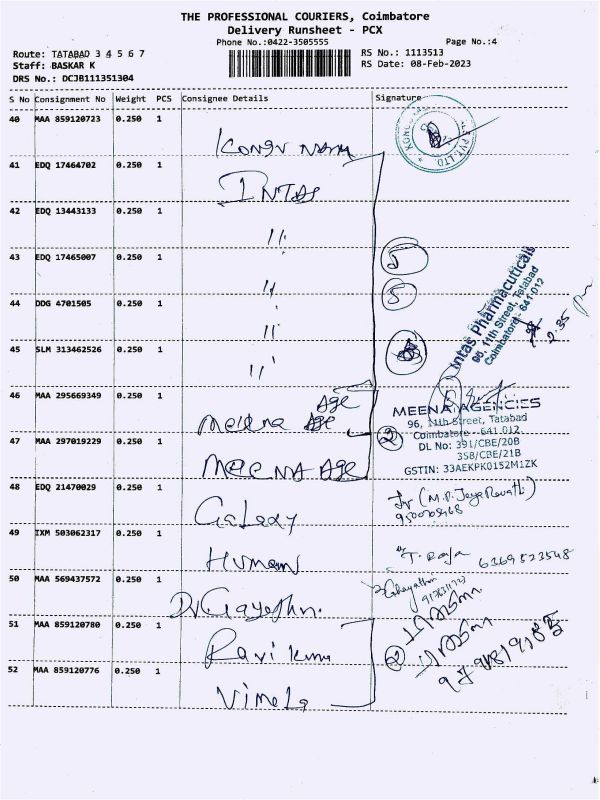 THE PROFESSIONAL COURIERS, Coimbatore
Delivery Runsheet - PCX
Phone No.:0422-3505555 Page No.:4
Route: TATABAD 3 4 5 6 7 RS No.: 1113513
Staff: BASKAR K RS Date: 08-Feb-2023
DRS No.: DCJB111351304
S No Consignment No Weight PCS Consignee Details Signature
40 MAA 859120723 0.250 1
41 EDQ 17464702 0.250 1 INTAS
42 EDQ 13443133 0.250 1 11
43 EDQ 17465007 0.250 1 11 5
44 DDG 4701505 0.250 1 11 5
45 SLM 313462526 0.250 1 11
Intas Pharmaceuticals
96, 11th Street, Tatabad
Coimbatore - 641 012
2.35
46 MAA 295669349 0.250 1 Meena Age
47 MAA 297019229 0.250 1 MEENA Age 2
MEENA AGENCIES
96, 11th Street, Tatabad
Coimbatore - 641 012
DL No: 391/CBE/20B
358/CBE/21B
GSTIN: 33AEKPK0152M1ZK
48 EDQ 21470029 0.250 1 Galaxy
49 IXM 503062317 0.250 1 T. Raja 6369523548
50 MAA 569437572 0.250 1 Dr Gayathri
51 MAA 859120780 0.250 1 Ravi Kumar
52 MAA 859120776 0.250 1 Vimela 2